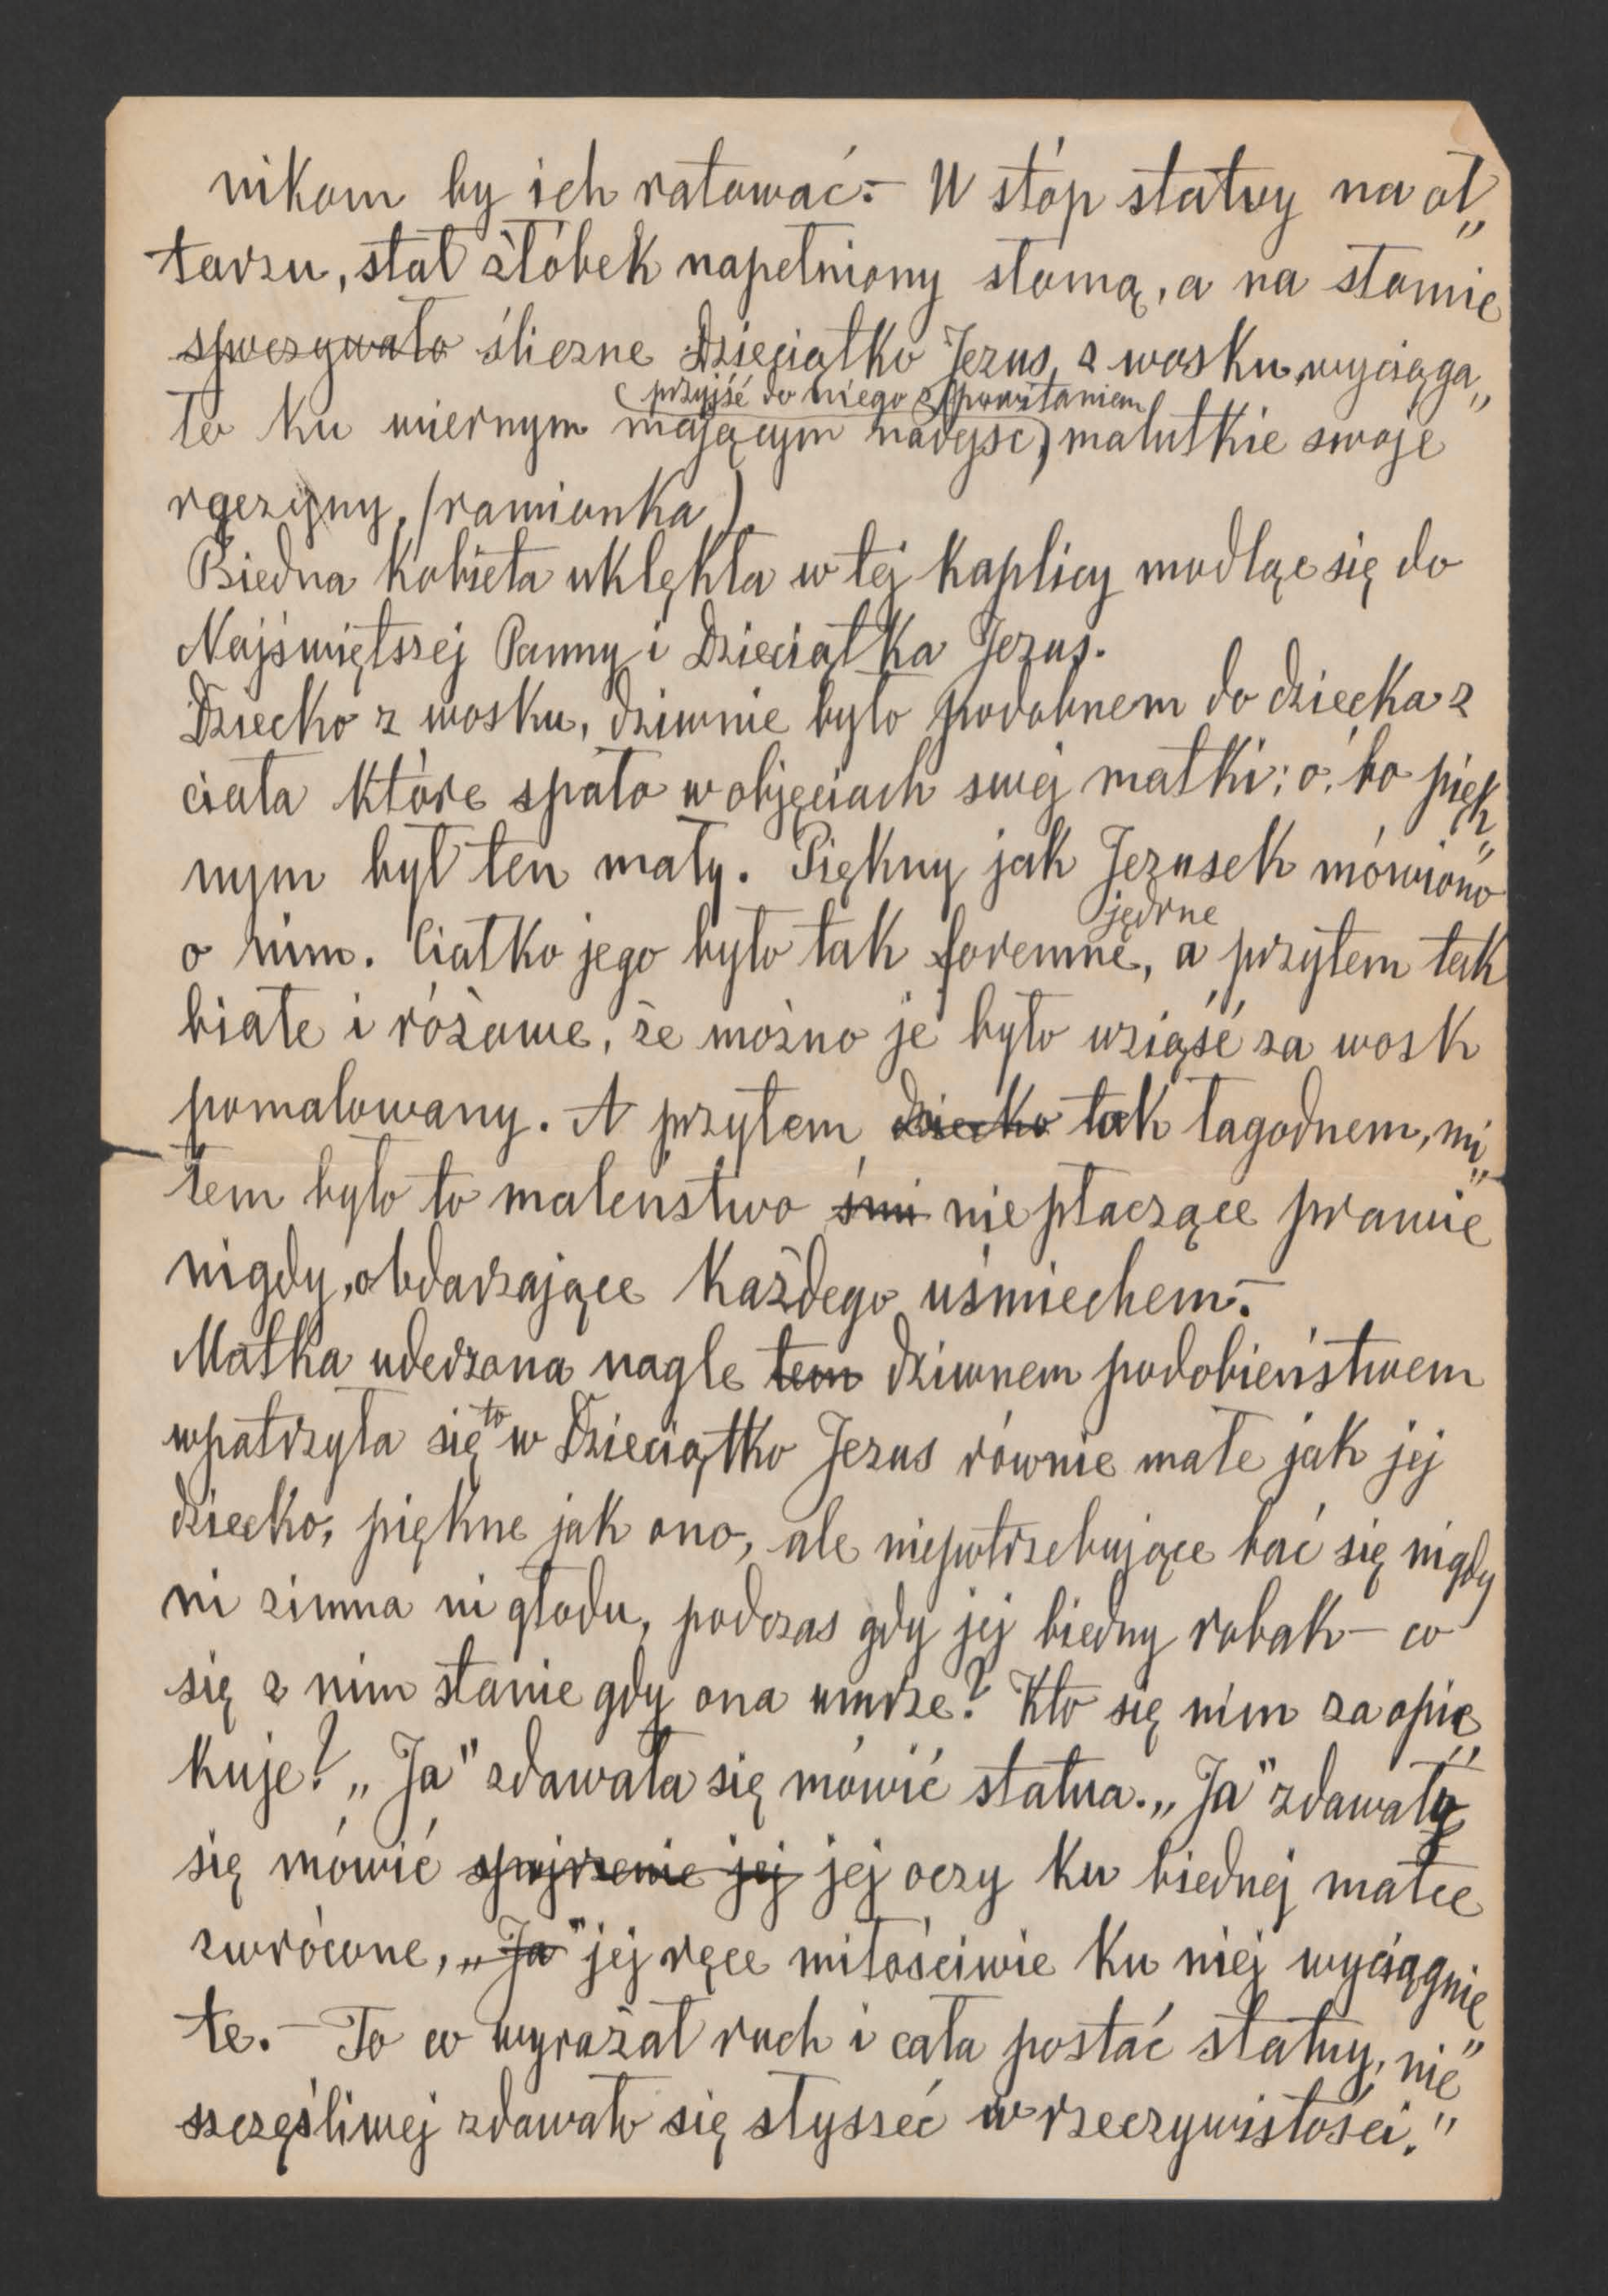 nikom by ich ratować.- U stóp statuy na oł„
tarzu, stał żłóbek napełniony słomą, a na słomie
spoczywało śliczne Dzieciątko Jezus, z wosku, wyciąga„
ło ku wiernym mającym nadejść, malutkie swoje
(przyjść do niego z powitaniem)
rączyny, (ramionka).
Biedna kobieta uklękła w tej kaplicy modląc się do
Najświętszej Panny i Dzieciątka Jezus.
Dziecko z wosku, dziwnie było podobnem do dziecka z
ciała które spało w objęciach swej matki; o! bo pięk„
nym był ten mały. Piękny jak Jezusek mówiono
jędrne
o nim. Ciałko jego było tak foremne, a przytem tak
białe i różowe, że można je było wziąść za wosk
pomalowany. A przytem dziecko tak łagodnem, mi„
łem było to maleństwo śmi nie płaczące prawie
nigdy, obdarzające każdego uśmiechem.-
Matka uderzona nagle tem dziwnem podobieństwem
wpatrzyła się to w Dzieciątko Jezus równie małe jak jej
dziecko, piękne jak ono, ale niepotrzebujące bać się nigdy
ni zimna ni głodu, podczas gdy jej biedny robak - co
się z nim stanie gdy ona umrze? Kto się nim zaopie„
kuje? „Ja" zdawała się mówić statua. „Ja" zdawały
się mówić spojrzenie jej jej oczy ku biednej matce
zwrócone, „Ja" jej ręce miłościwie ku niej wyciągnię„
te.- To co wyrażał ruch i cała postać statuy, nie„
szczęśliwej zdawało się słyszeć w rzeczywistości."